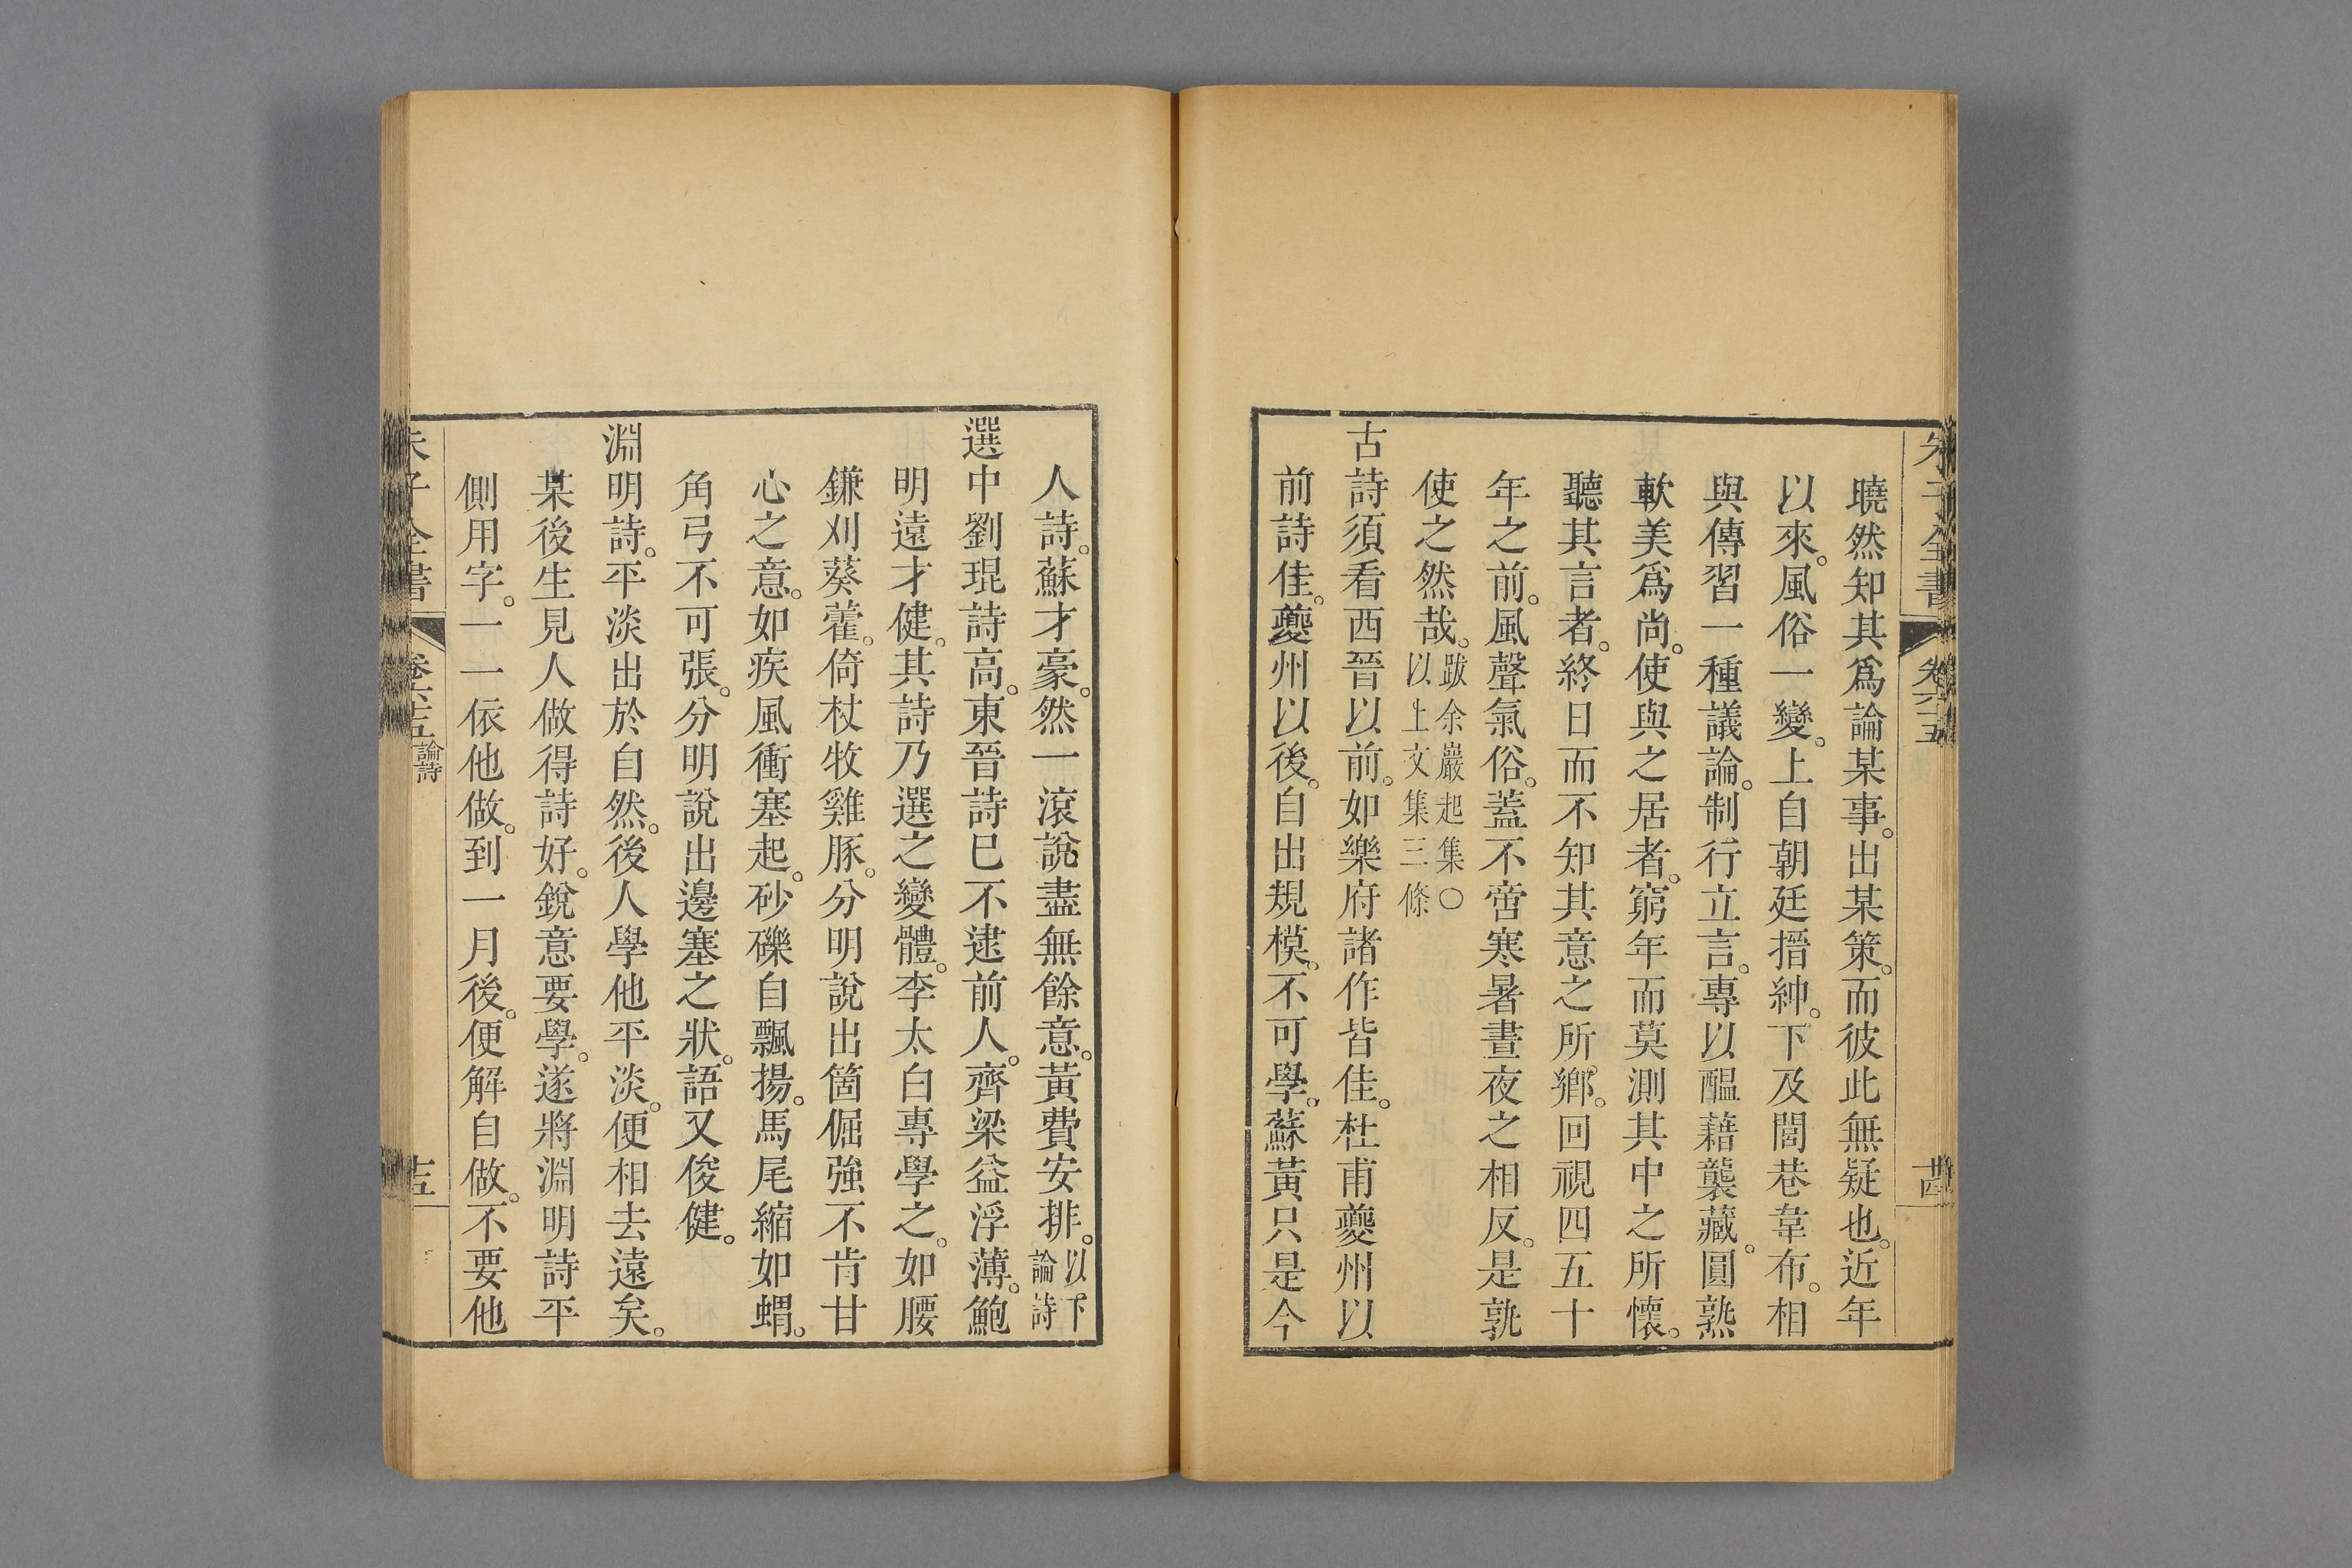 朱子全書 卷六十五
曉然知其爲論某事。出某策。而彼此無疑也。近年
以來。風俗一變。上自朝廷搢紳。下及閭巷韋布。相
與傳習一種議論。制行立言。專以醞藉襲藏。圓熟
軟美爲尚。使與之居者。窮年而莫測其中之所懷。
聽其言者。終日而不知其意之所鄕。回視四五十
年之前。風聲氣俗。蓋不啻寒暑晝夜之相反。是孰
使之然哉。跋余巖起集○以上文集三條
古詩須看西晉以前。如樂府諸作皆佳。杜甫夔州以
前詩佳。夔州以後。自出規模。不可學。蘇黃只是今
人詩。蘇才豪。然一滾說盡無餘意。黃費安排。以下論詩
選中劉琨詩高。東晉詩已不逮前人。齊梁益浮薄。鮑
明遠才健。其詩乃選之變體。李太白專學之。如腰
鎌刈葵藿。倚杖牧雞豚。分明說出箇倔強不肯甘
心之意。如疾風衝塞起。砂礫自飄揚。馬尾縮如蝟。
角弓不可張。分明說出邊塞之狀。語又俊健。
淵明詩。平淡出於自然。後人學他平淡。便相去遠矣。
某後生見人做得詩好。銳意要學。遂將淵明詩平
側用字。一一依他做。到一月後。便解自做。不要他
朱子全書 卷六十五 論詩